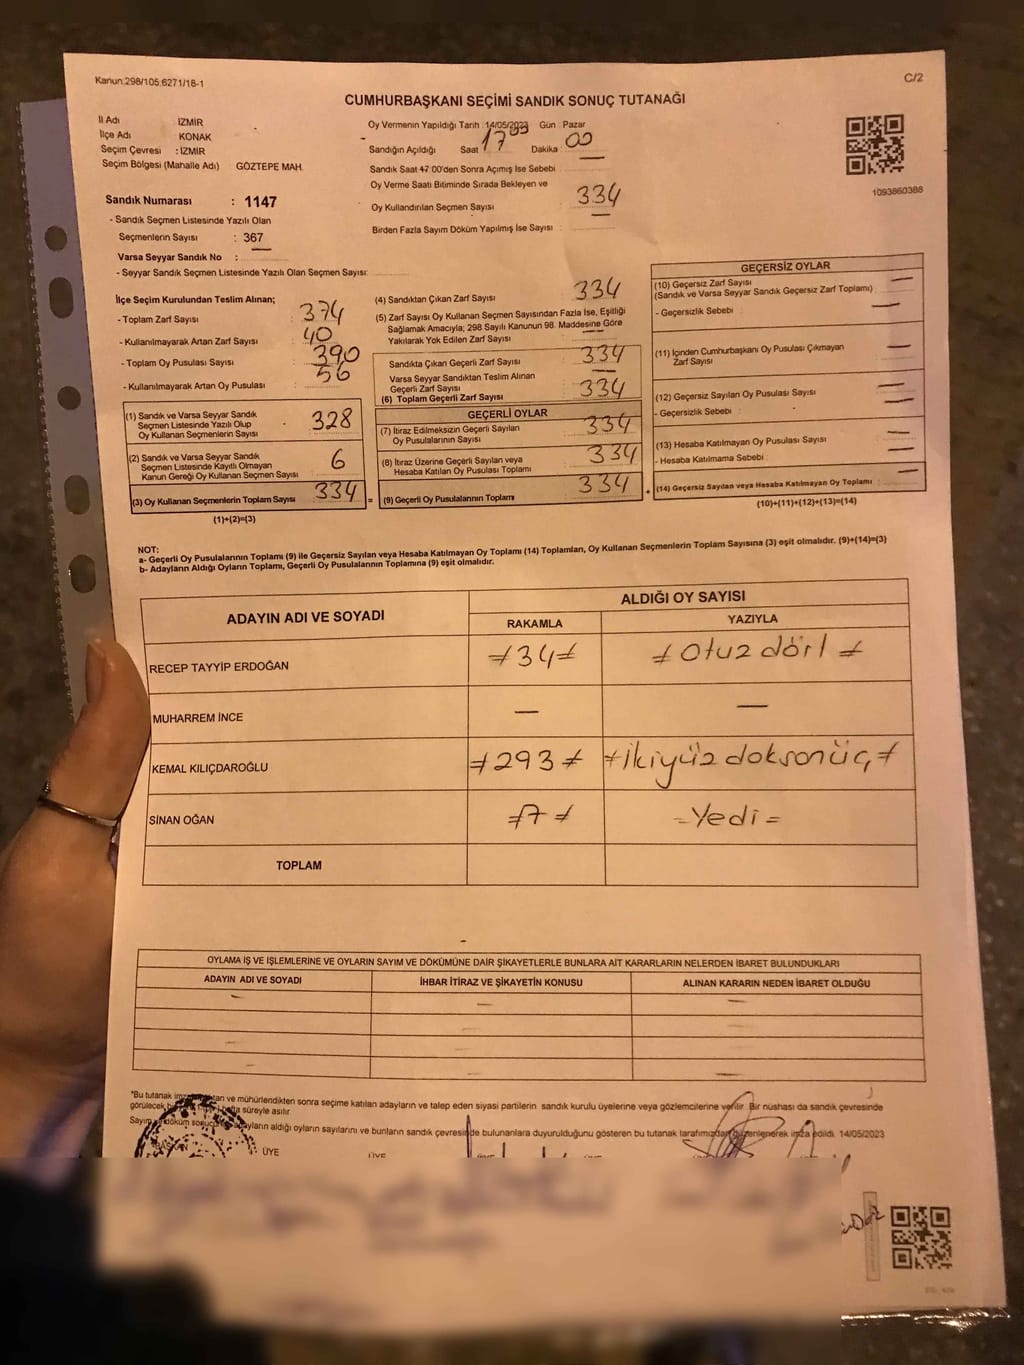 Kanun:298/105;6271/18-1
C/2
CUMHURBAŞKANI SEÇİMİ SANDIK SONUÇ TUTANAĞI
İl Adı İZMİR
İlçe Adı KONAK
Seçim Çevresi : İZMİR
Seçim Bölgesi (Mahalle Adı) GÖZTEPE MAH.
Sandık Numarası : 1147
- Sandık Seçmen Listesinde Yazılı Olan
Seçmenlerin Sayısı : 367
Varsa Seyyar Sandık No :
- Seyyar Sandık Seçmen Listesinde Yazılı Olan Seçmen Sayısı:
Oy Vermenin Yapıldığı Tarih :14/05/2023 Gün : Pazar
Sandığın Açıldığı Saat 17 Dakika 00
Sandık Saat 17:00'den Sonra Açımış İse Sebebi
Oy Verme Saati Bitiminde Sırada Bekleyen ve
Oy Kullandırılan Seçmen Sayısı 334
Birden Fazla Sayım Döküm Yapılmış İse Sayısı :
1093860388
İlçe Seçim Kurulundan Teslim Alınan;
- Toplam Zarf Sayısı : 374
- Kullanılmayarak Artan Zarf Sayısı : 40
- Toplam Oy Pusulası Sayısı : 390
- Kullanılmayarak Artan Oy Pusulası : 56
(1) Sandık ve Varsa Seyyar Sandık
Seçmen Listesinde Yazılı Olup
Oy Kullanan Seçmenlerin Sayısı 328
(2) Sandık ve Varsa Seyyar Sandık
Seçmen Listesinde Kayıtlı Olmayan
Kanun Gereği Oy Kullanan Seçmen Sayısı 6
(3) Oy Kullanan Seçmenlerin Toplam Sayısı 334 =
(1)+(2)=(3)
(4) Sandıktan Çıkan Zarf Sayısı 334
(5) Zarf Sayısı Oy Kullanan Seçmen Sayısından Fazla İse, Eşitliği
Sağlamak Amacıyla; 298 Sayılı Kanunun 98. Maddesine Göre
Yakılarak Yok Edilen Zarf Sayısı
Sandıkta Çıkan Geçerli Zarf Sayısı 334
Varsa Seyyar Sandıktan Teslim Alınan
Geçerli Zarf Sayısı
(6) Toplam Geçerli Zarf Sayısı 334
GEÇERLİ OYLAR
(7) İtiraz Edilmeksizin Geçerli Sayılan
Oy Pusulalarının Sayısı 334
(8) İtiraz Üzerine Geçerli Sayılan veya
Hesaba Katılan Oy Pusulası Toplamı 334
(9) Geçerli Oy Pusulalarının Toplamı 334 +
GEÇERSİZ OYLAR
(10) Geçersiz Zarf Sayısı
(Sandık ve Varsa Seyyar Sandık Geçersiz Zarf Toplamı)
- Geçersizlik Sebebi :
(11) İçinden Cumhurbaşkanı Oy Pusulası Çıkmayan
Zarf Sayısı
(12) Geçersiz Sayılan Oy Pusulası Sayısı
- Geçersizlik Sebebi :
(13) Hesaba Katılmayan Oy Pusulası Sayısı
- Hesaba Katılmama Sebebi :
(14) Geçersiz Sayılan veya Hesaba Katılmayan Oy Toplamı
(10)+(11)+(12)+(13)=(14)
NOT:
a- Geçerli Oy Pusulalarının Toplamı (9) ile Geçersiz Sayılan veya Hesaba Katılmayan Oy Toplamı (14) Toplamları, Oy Kullanan Seçmenlerin Toplam Sayısına (3) eşit olmalıdır. (9)+(14)=(3)
b- Adayların Aldığı Oyların Toplamı, Geçerli Oy Pusulalarının Toplamına (9) eşit olmalıdır.
ADAYIN ADI VE SOYADI ALDIĞI OY SAYISI
RAKAMLA YAZIYLA
RECEP TAYYİP ERDOĞAN 34 Otuz dört
MUHARREM İNCE — —
KEMAL KILIÇDAROĞLU 293 ikiyüz doksonüç
SİNAN OĞAN 7 =Yedi=
TOPLAM
OYLAMA İŞ VE İŞLEMLERİNE VE OYLARIN SAYIM VE DÖKÜMÜNE DAİR ŞİKAYETLERLE BUNLARA AİT KARARLARIN NELERDEN İBARET BULUNDUKLARI
ADAYIN ADI VE SOYADI İHBAR İTİRAZ VE ŞİKAYETİN KONUSU ALINAN KARARIN NEDEN İBARET OLDUĞU
*Bu tutanak ve mühürlendikten sonra seçime katılan adayların ve talep eden siyasi partilerin sandık kurulu üyelerine veya gözlemcilerine verilir. Bir nüshası da sandık çevresinde
görülecek süreyle asılır.
Sayım döküm adayların aldığı oyların sayılarını ve bunların sandık çevresinde bulunanlara duyurulduğunu gösteren bu tutanak tarafımızdan düzenlenerek imza edildi. 14/05/2023
BAŞKAN ÜYE ÜYE